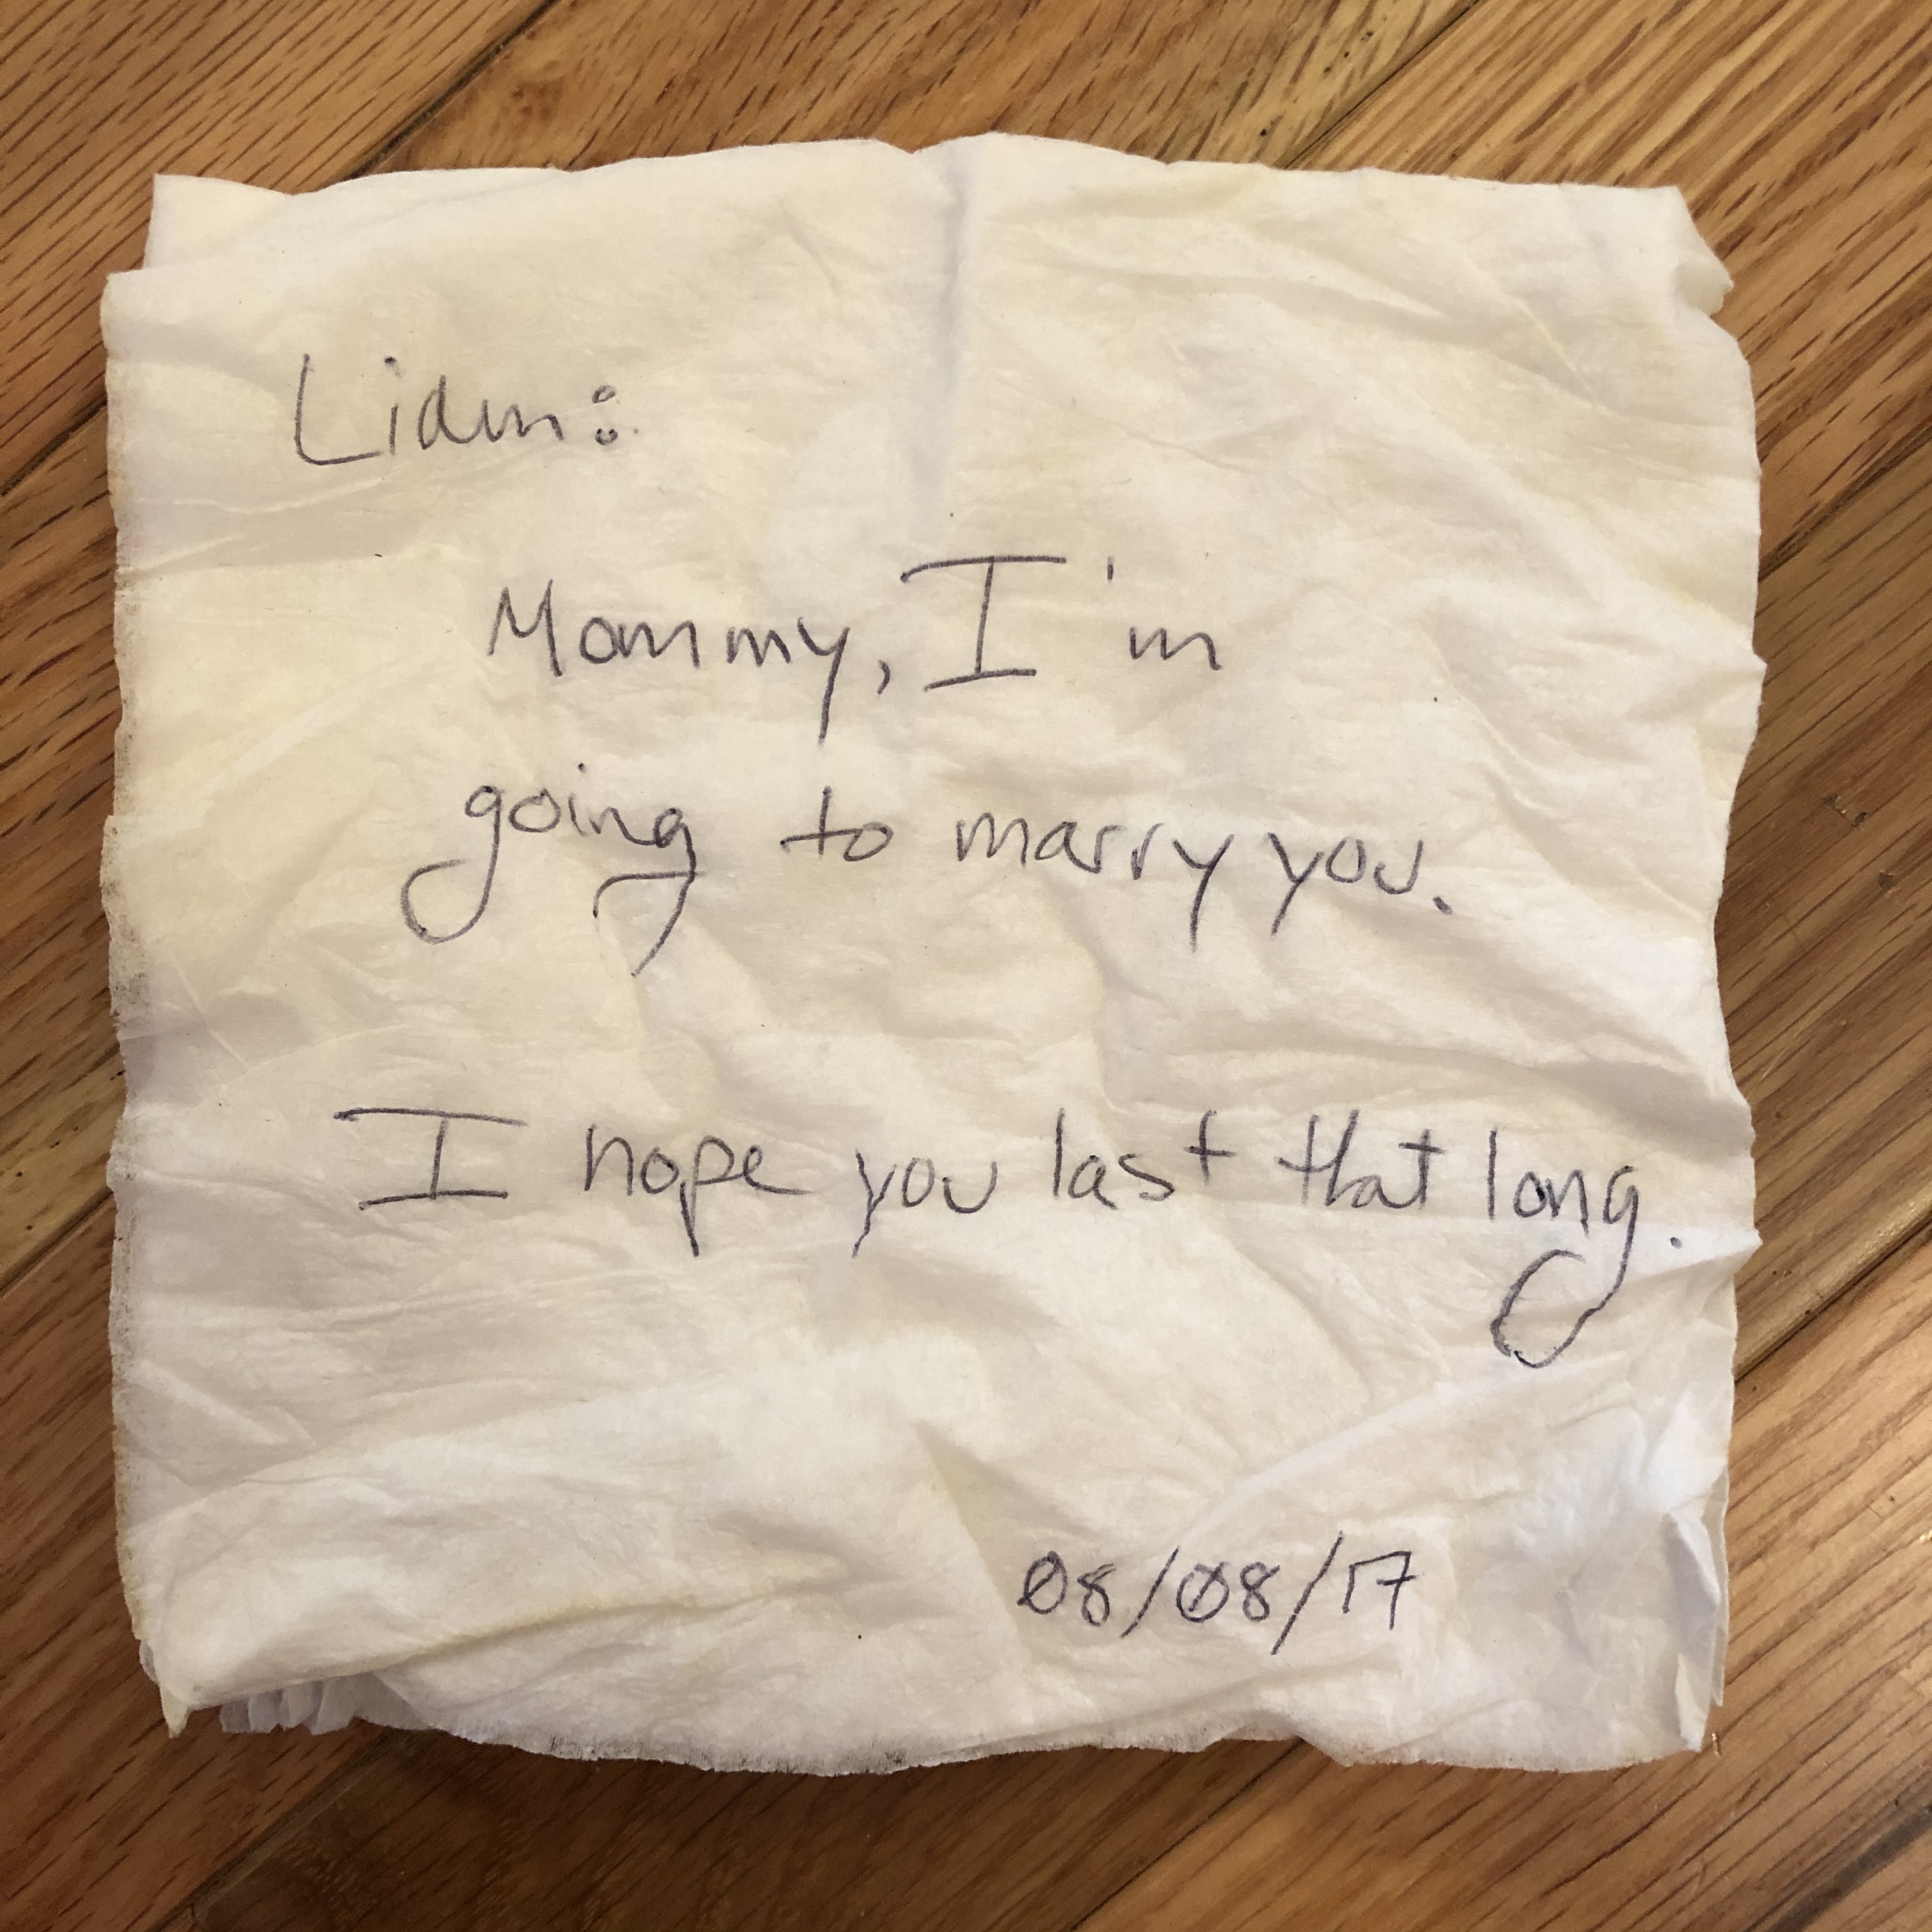 Liam:
Mommy, I'm
going to marry you.
I hope you last that long.
08/08/17